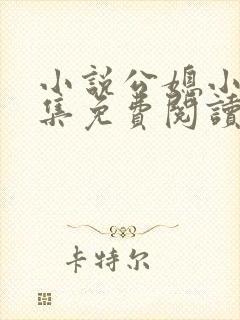 小說公媳小
集免費閱讀
卡特尔